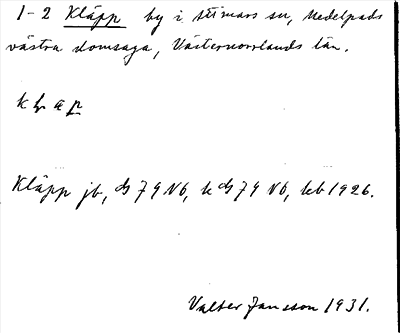 1-2 Kläpp by i Attmars sn, Medelpads
västra domsaga, Västernorrlands län.
Kläpp jb, G 79 Nb, k G 79 Nb, kb 1926.
Valter Jansson 1931.